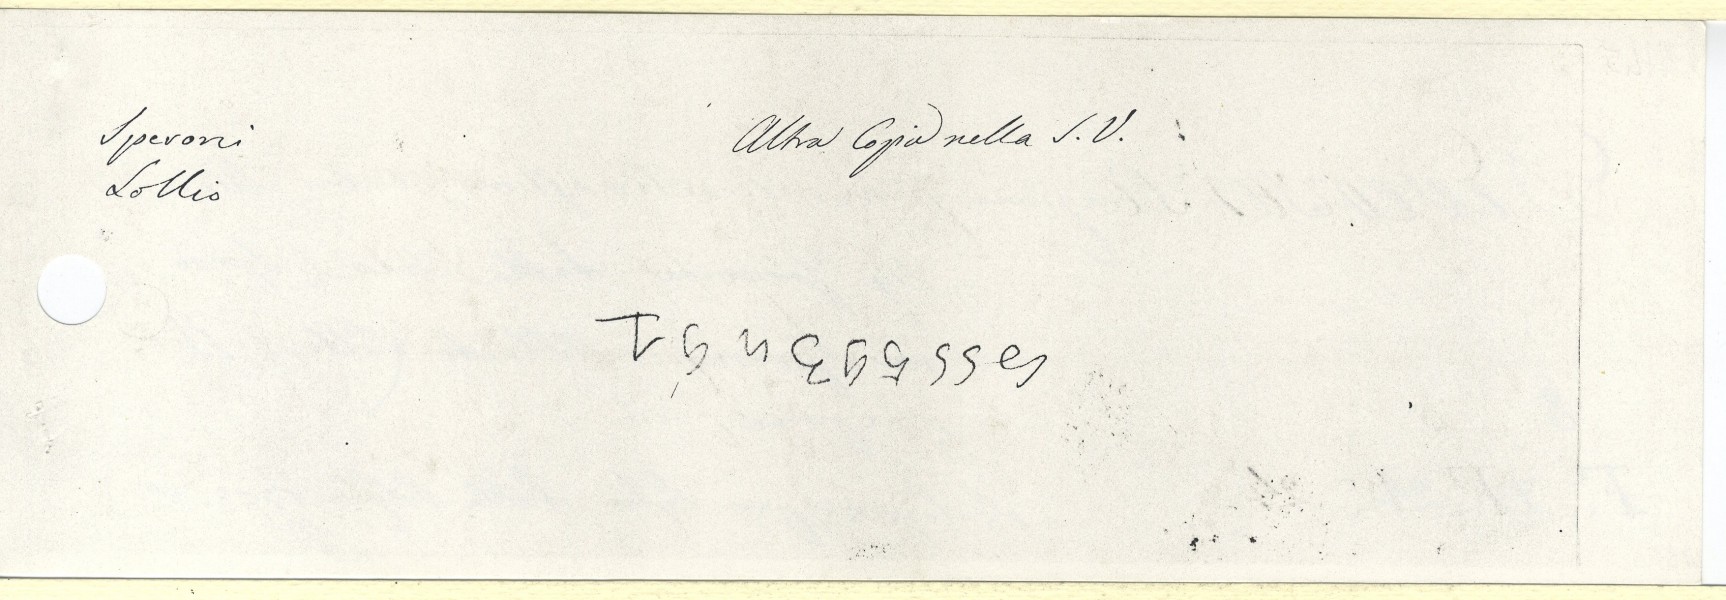 Speroni
Lollio
Altra Copia nella S. V.